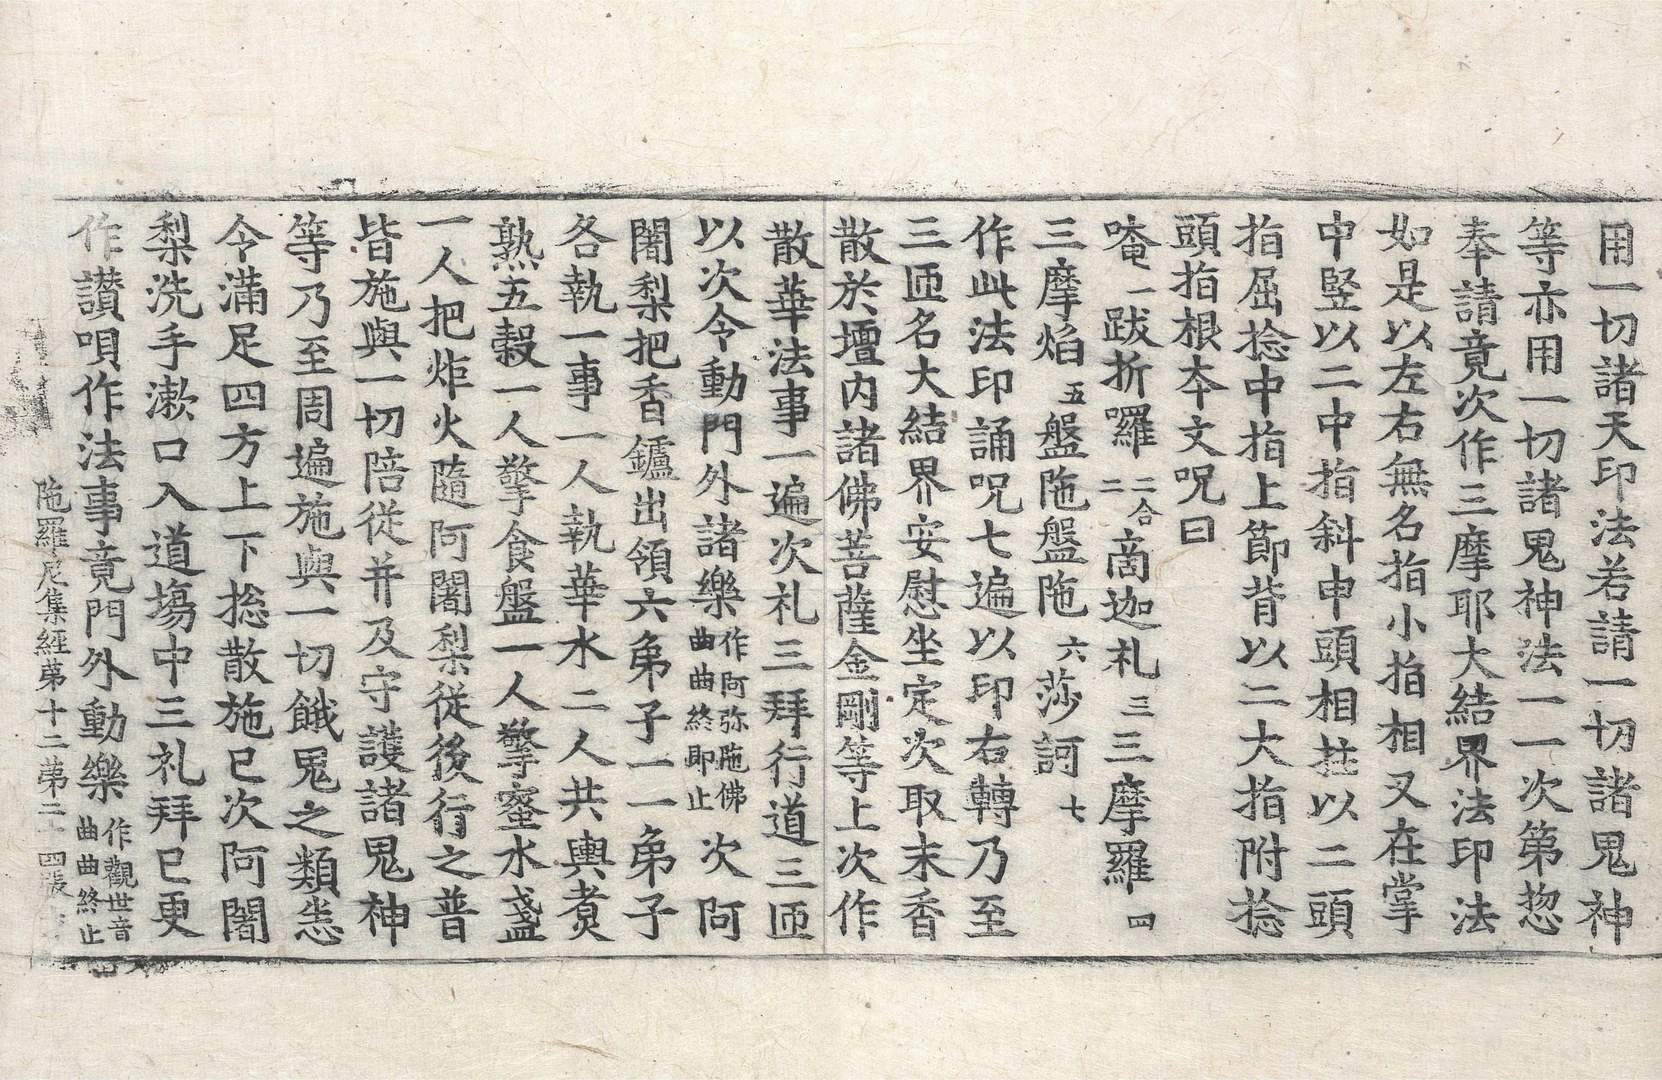 用一切諸天印法若請一切諸鬼神
等亦用一切諸鬼神法一一次第惣
奉請竟次作三摩耶大結界法印法
如是以左右無名指小指相叉在掌
中竪以二中指斜申頭相拄以二頭
指屈捻中指上節背以二大指附捻
頭指根夲文呪曰
唵一跋折囉二合二啇迦礼三三摩羅四
三摩焰五盤陁盤陁六莎訶七
作此法印誦呪七遍以印右轉乃至
三匝名大結界安慰坐定次取末香
散於壇内諸佛菩薩金剛等上次作
散華法事一遍次礼三拜行道三匝
以次令動門外諸樂作阿弥陁佛曲曲終即止次阿
闍梨把香鑪出領六弟子一一弟子
各執一事一人執華水二人共輿煑
熟五穀一人擎食盤一人擎蜜水盞
一人把炬火隨阿闍梨従後行之普
皆施與一切陪従并及守護諸鬼神
等乃至周遍施與一切餓鬼之類恙
令滿足四方上下捻散施已次阿闍
梨洗手漱口入道塲中三礼拜已更
作讃唄作法事竟門外動樂作觀世音曲曲終止
陁羅尼集經第十二第二十四張